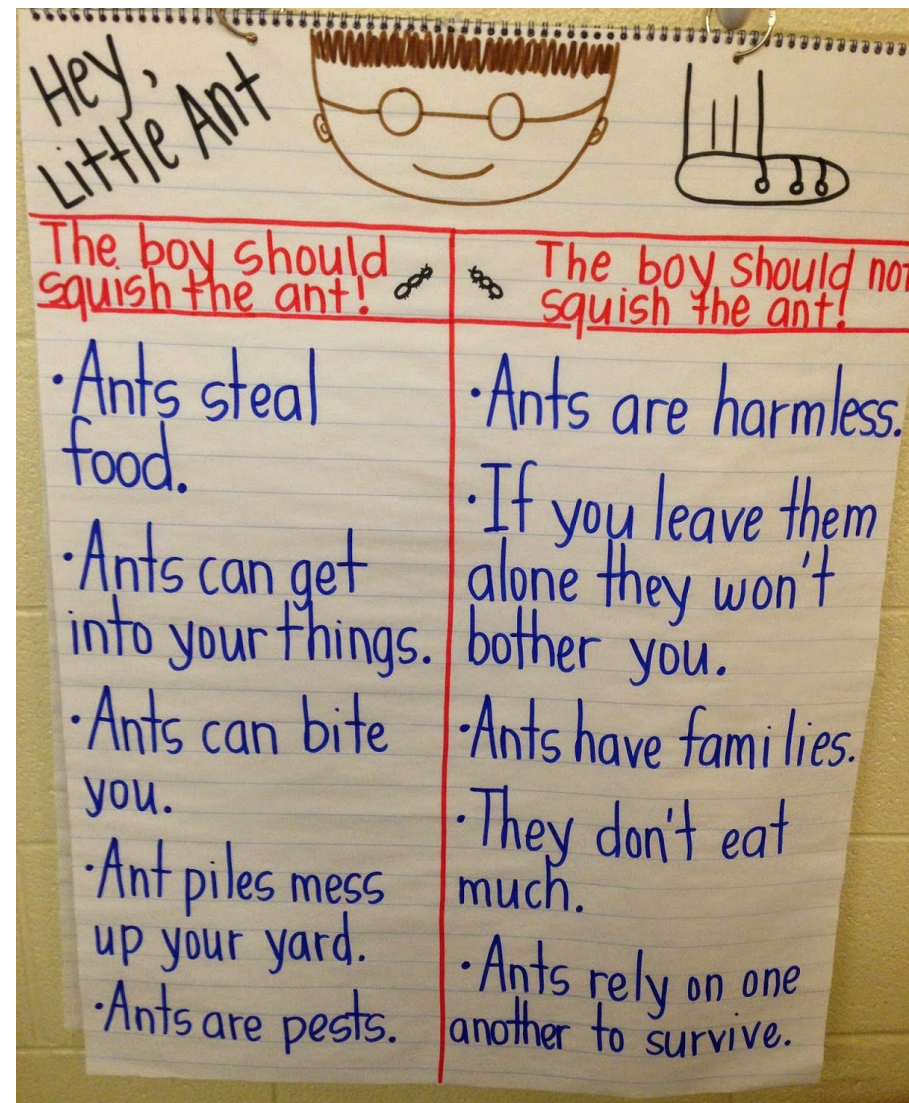 Hey,
Little Ant
The boy should
squish the ant!
·Ants steal
food.
·Ants can get
into your things.
·Ants can bite
you.
·Ant piles mess
up your yard.
·Ants are pests.
The boy should not
squish the ant!
·Ants are harmless.
·If you leave them
alone they won't
bother you.
·Ants have families.
·They don't eat
much.
·Ants rely on one
another to survive.